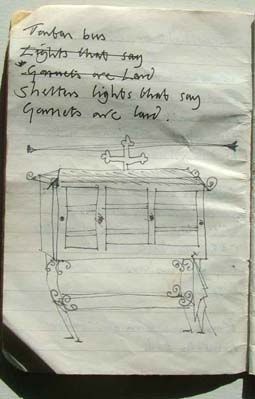 Tartan bus
Lights that say
Gannets are Lard
Shelter lights that say
Gannets are lard.